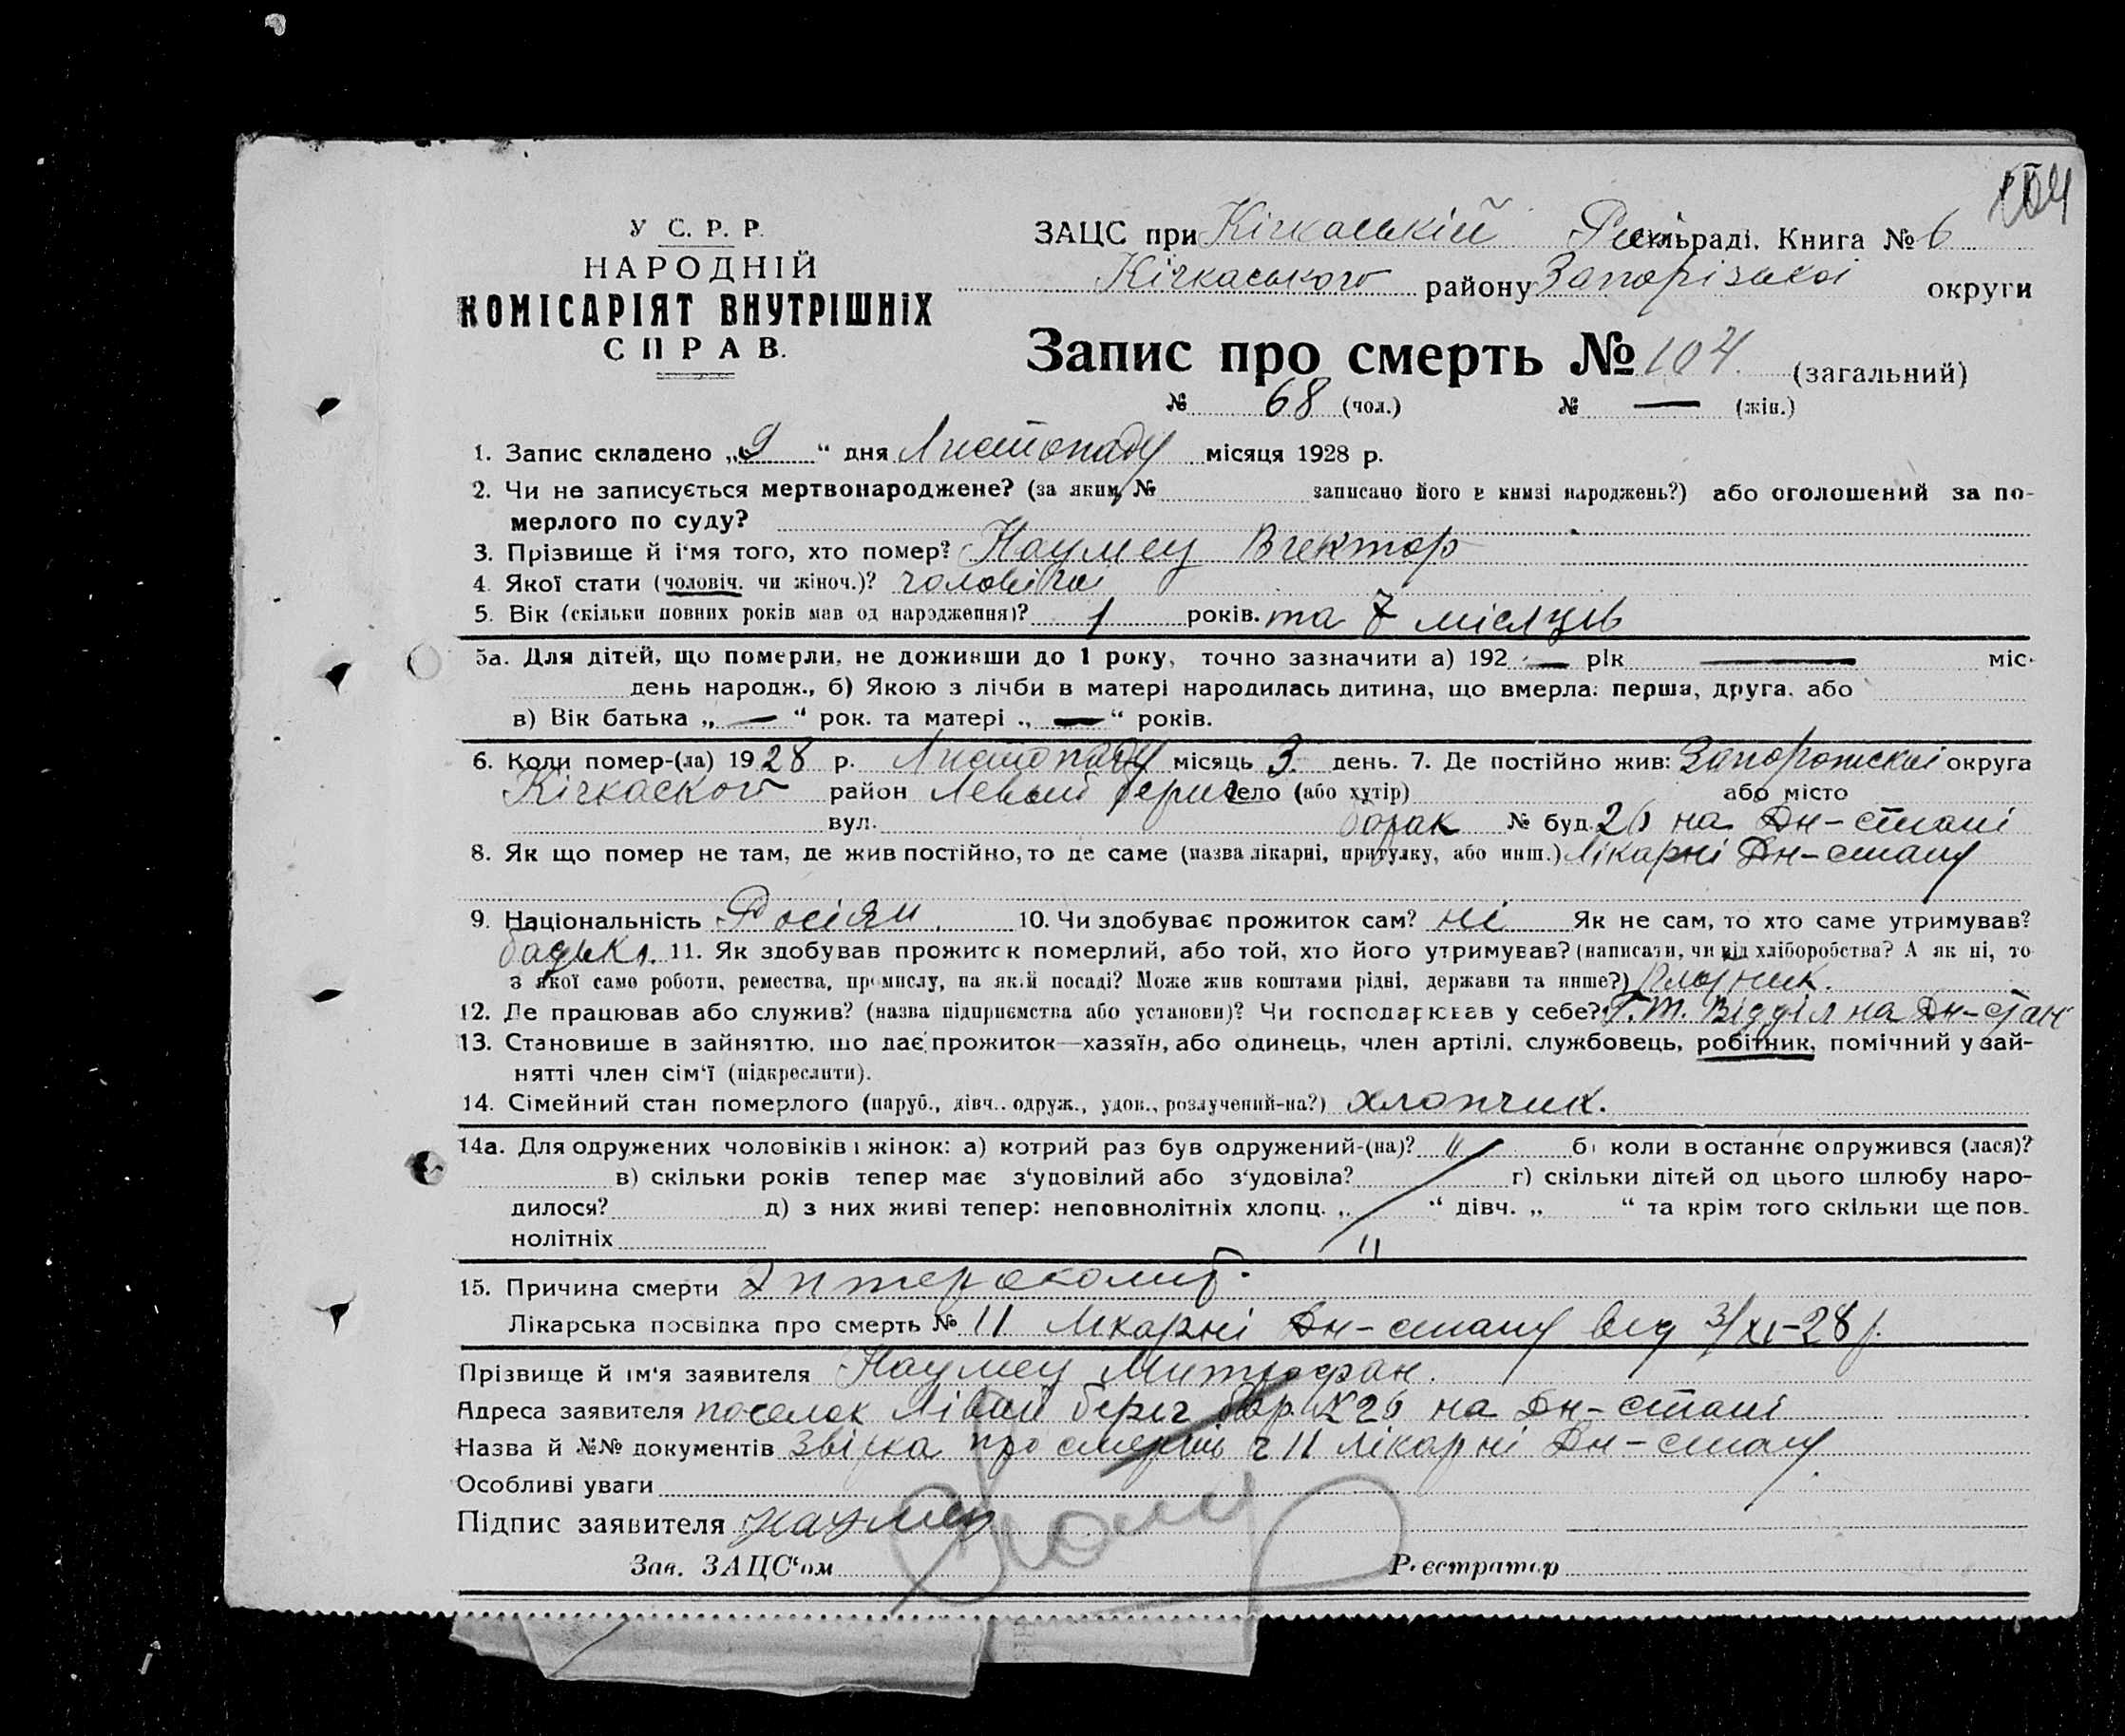 104
У С. Р. Р.
НАРОДНІЙ
КОМІСАРІЯТ ВНУТРІШНІХ
СПРАВ.
ЗАЦС при Кічкаській сільраді. Книга № 6
Кічкаського району Запорізької округи
Запис про смерть № 104. (загальний)
№ 68 (чол.) № — (жін.)
1. Запис складено „9“ дня Листопаду місяця 1928 р.
2. Чи не записується мертвонароджене? (за яким № записано його в книзі народжень?) або оголошений за по-
мерлого по суду?
3. Прізвище й і'мя того, хто помер? Наумец Віектор
4. Якої стати (чоловіч. чи жіноч.)? чоловічої
5. Вік (скільки повних років мав од народження)? 1 років. та 7 місяців
5а. Для дітей, що померли, не доживши до 1 року, точно зазначити а) 192 — рік — міс.
день народж., б) Якою з лічби в матері народилась дитина, що вмерла: перша, друга, або
в) Вік батька „ — “ рок. та матері „ — “ років.
6. Коли помер-(ла) 1928 р. Листопаду місяць 3. день. 7. Де постійно жив: Запорожскої округа
Кічкаского район Левый берег село (або хутір) або місто
вул. барак № буд. 26 на Дн-стані
8. Як що помер не там, де жив постійно, то де саме (назва лікарні, притулку, або инш.) Лікарні Дн-стану
9. Національність Росіян. 10. Чи здобуває прожиток сам? ні Як не сам, то хто саме утримував?
батько. 11. Як здобував прожиток померлий, або той, хто його утримував? (написати, чи від хліборобства? А як ні, то
з якої саме роботи, ремества, промислу, на якій посаді? Може жив коштами рідні, держави та инше?)
12. Де працював або служив? (назва підприємства або установи)? Чи господарював у себе? Г.Т. Відділ на Дн-стан
13. Становище в зайняттю, що дає прожиток—хазяїн, або одинець, член артілі, службовець, робітник, помічний у зай-
нятті член сім'ї (підкреслити).
14. Сімейний стан померлого (паруб., дівч., одруж., удов., розлучений-на?) хлопчик.
14а. Для одружених чоловіків і жінок: а) котрий раз був одружений-(на)? " б) коли в останнє одружився (лася)?
в) скільки років тепер має з'удовілий або з'удовіла? г) скільки дітей од цього шлюбу наро-
дилося? д) з них живі тепер: неповнолітніх хлопц. „ “ дівч. „ “ та крім того скільки ще пов-
нолітніх "
15. Причина смерти Ентероколит.
Лікарська посвідка про смерть № 11 Лікарні Дн-стану від 3/XI-28 р.
Прізвище й ім'я заявителя Наумец Митрофан.
Адреса заявителя поселок Лівий беріг бар. №26 на Дн-стані
Назва й №№ документів Звірка про смерть ч 11 лікарні Дн-стану
Особливі уваги
Підпис заявителя Наумец
Зав. ЗАЦС'ом Реєстратор